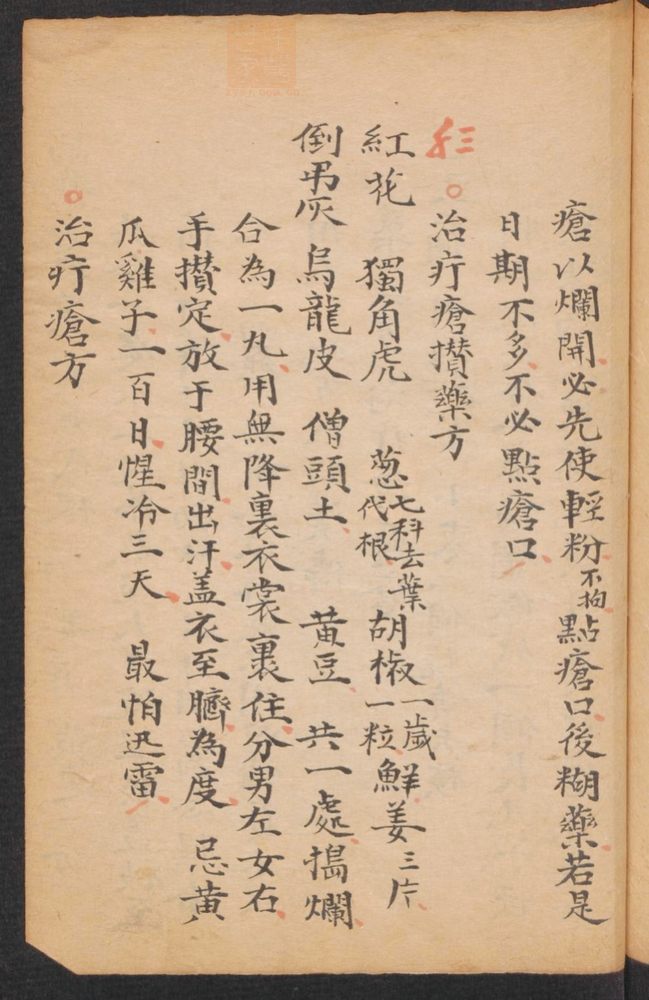 瘡以爛開必先使輕粉不拘點瘡口後糊藥若是
日期不多不必點瘡口
三
治疔瘡攢藥方
紅花　獨角虎　葱七科去葉代根　胡椒一歲一粒　鮮姜三片
倒吊灰　烏龍皮　僧頭土　黃豆　共一處搗爛
合為一丸用無降裏衣裳裹住分男左女右
手攢定放于腰間出汗盖衣至臍為度　忌黃
瓜雞子一百日惺冷三天　最怕迅雷
治疔瘡方